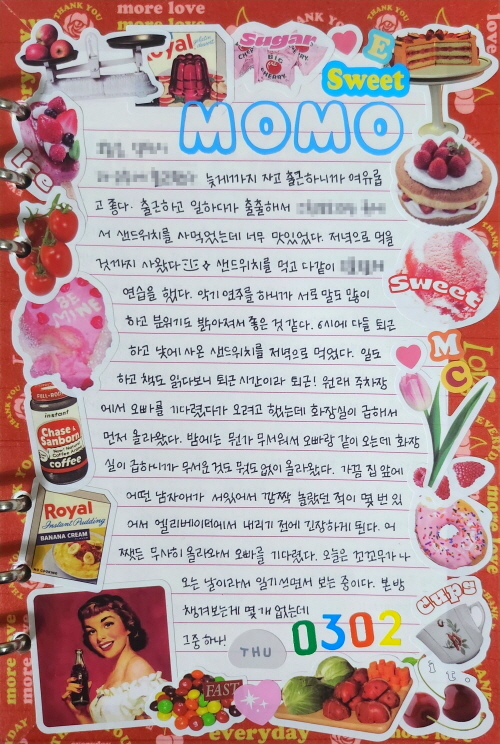 THANK YOU
more love
Royal
Sugar
BIG
CHERRY
E
Sweet
MOMO
늦게까지 자고 출근하니까 여유롭
고 좋다. 출근하고 일하다가 출출해서
서 샌드위치를 사먹었는데 너무 맛있었다. 저녁으로 먹을
것까지 사왔다 샌드위치를 먹고 다같이
연습을 했다. 악기 연주를 하니까 서로 말도 많이
하고 분위기도 밝아져서 좋은 것 같다. 6시에 다들 퇴근
하고 낮에 사온 샌드위치를 저녁으로 먹었다. 일도
하고 책도 읽다보니 퇴근 시간이라 퇴근! 원래 주차장
에서 오빠를 기다렸다가 오려고 했는데 화장실이 급해서
먼저 올라왔다. 밤에는 뭔가 무서워서 오빠랑 같이 오는데 화장
실이 급하니까 무서운것도 뭐도 없이 올라왔다. 가끔 집 앞에
어떤 남자애가 서있어서 깜짝 놀랐던 적이 몇 번 있
어서 엘리베이터에서 내리기 전에 긴장하게 된다. 어
쨌든 무사히 올라와서 오빠를 기다렸다. 오늘은 꼬꼬무가 나
오는 날이라서 일기쓰면서 보는 중이다. 본방
챙겨보는게 몇 개 없는데
그중 하나!
THU
0302
Ice
BE
MINE
Sweet
M
C
instant
Chase &
Sanborn
coffee
Royal
Instant Pudding
BANANA CREAM
cups
FAST
everyday
more love